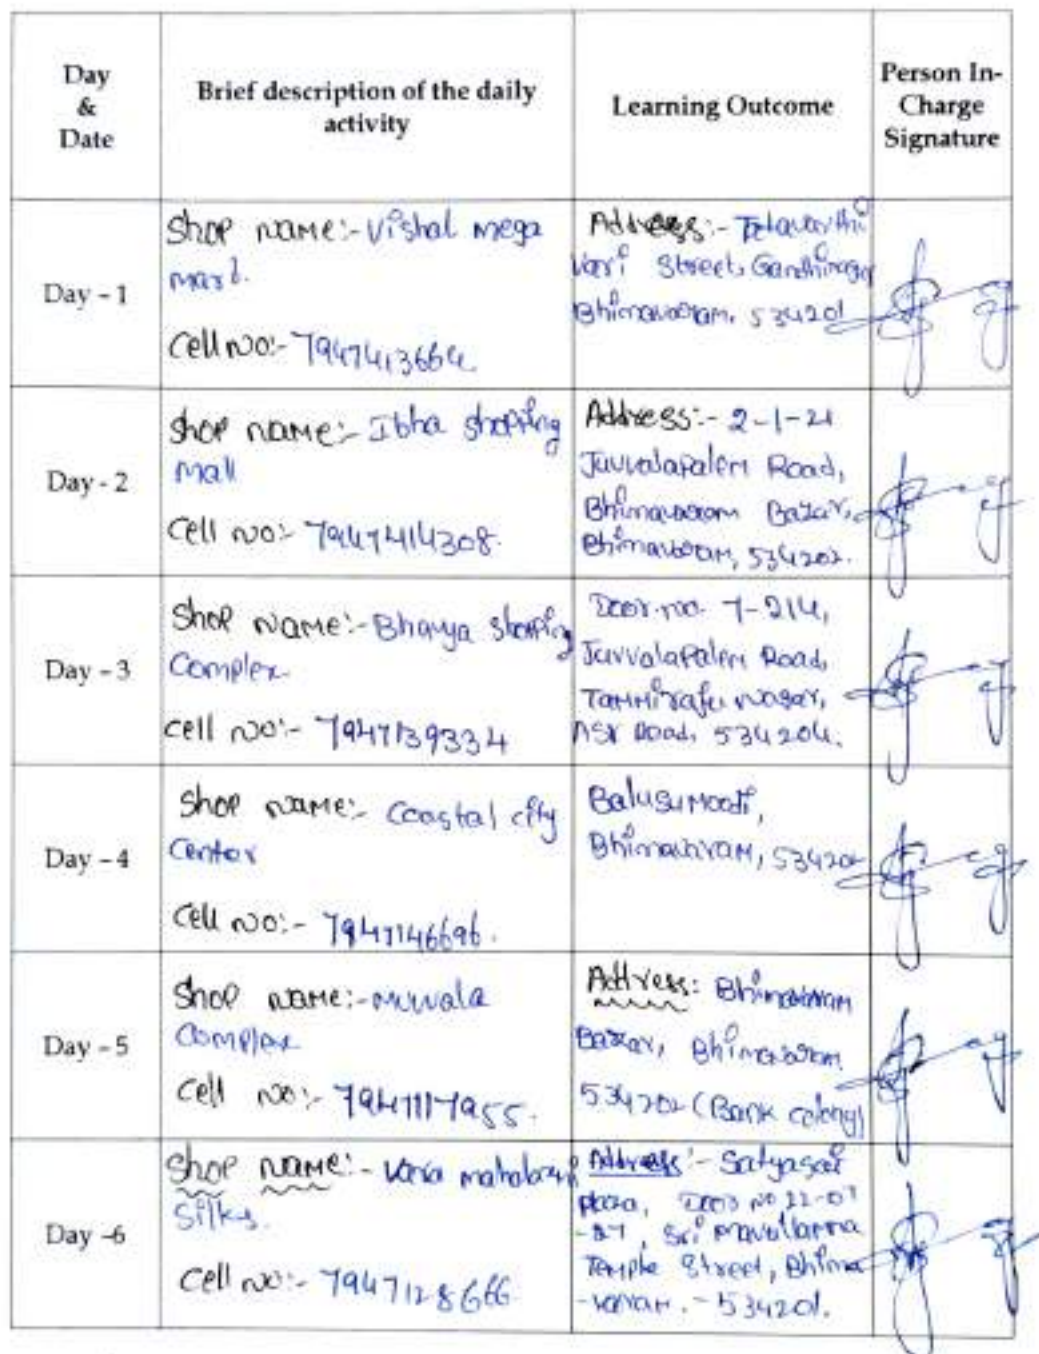 Day
&
Date
Brief description of the daily
activity
Learning Outcome
Person In-
Charge
Signature
Day - 1
Shop name:- Vishal mega
mart.
Cell no:- 7947413664.
Address:-
vari Street, Gandhinagar
Bhimavaram, 534201
Day - 2
Shop name:- Ibha shopping
Mall
Cell no:- 7947414308.
Address:- 2-1-21
Juvvalapalem Road,
Bhimavaram Bazar,
Bhimavaram, 534202.
Day - 3
Shop name:- Bhavya shopping
Complex.
Cell no:- 7947139334
Door.no. 7-214,
Juvvalapalem Road,
Tammiraju Nagar,
ASR Road, 534204.
Day - 4
Shop name:- Coastal city
Center
Cell no:- 7947146696.
Balusumoodi,
Bhimavaram, 534202
Day - 5
Shop name:- Muvvala
Complex
Cell no:- 7947117955.
Address: Bhimavaram
Bazar, Bhimavaram
534202 (Bank colony)
Day -6
Shop name:- Vara mahalaxmi
Silks.
Cell no:- 7947128666.
Address:- Satyasai
plaza, Door no 22-07
-27, Sri mavullamma
Temple Street, Bhima
-varam. - 534201.